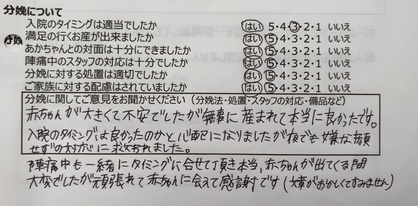 分娩について
入院のタイミングは適当でしたか はい 5・4・3・2・1 いいえ
満足の行くお産が出来ましたか はい 5・4・3・2・1 いいえ
あかちゃんとの対面は十分にできましたか はい 5・4・3・2・1 いいえ
陣痛中のスタッフの対応は十分でしたか はい 5・4・3・2・1 いいえ
分娩に対する処置は適切でしたか はい 5・4・3・2・1 いいえ
ご家族に対する配慮はされていましたか はい 5・4・3・2・1 いいえ
分娩に関してご意見をお聞かせください（分娩法・処置・スタッフの対応・備品など）
赤ちゃんが大きくて不安でしたが無事に産まれて本当に良かったです。
入院のタイミングは良かったのかと心配になりましたが 嫌な顔
せず
陣痛中も一緒にタイミングに合せて頂き本当、赤ちゃんが出てくる間
大変でしたが頑張れて赤ちゃんに会えて感謝です（文章がおかしくてすみません）